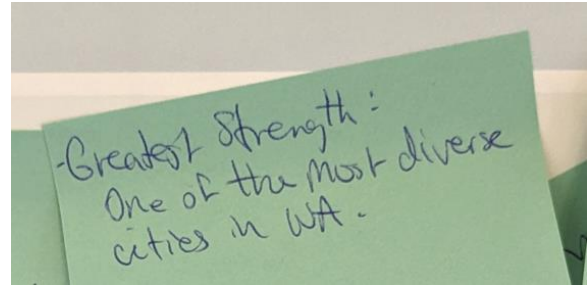 -Greatest Strength:
One of the most diverse
cities in WA.